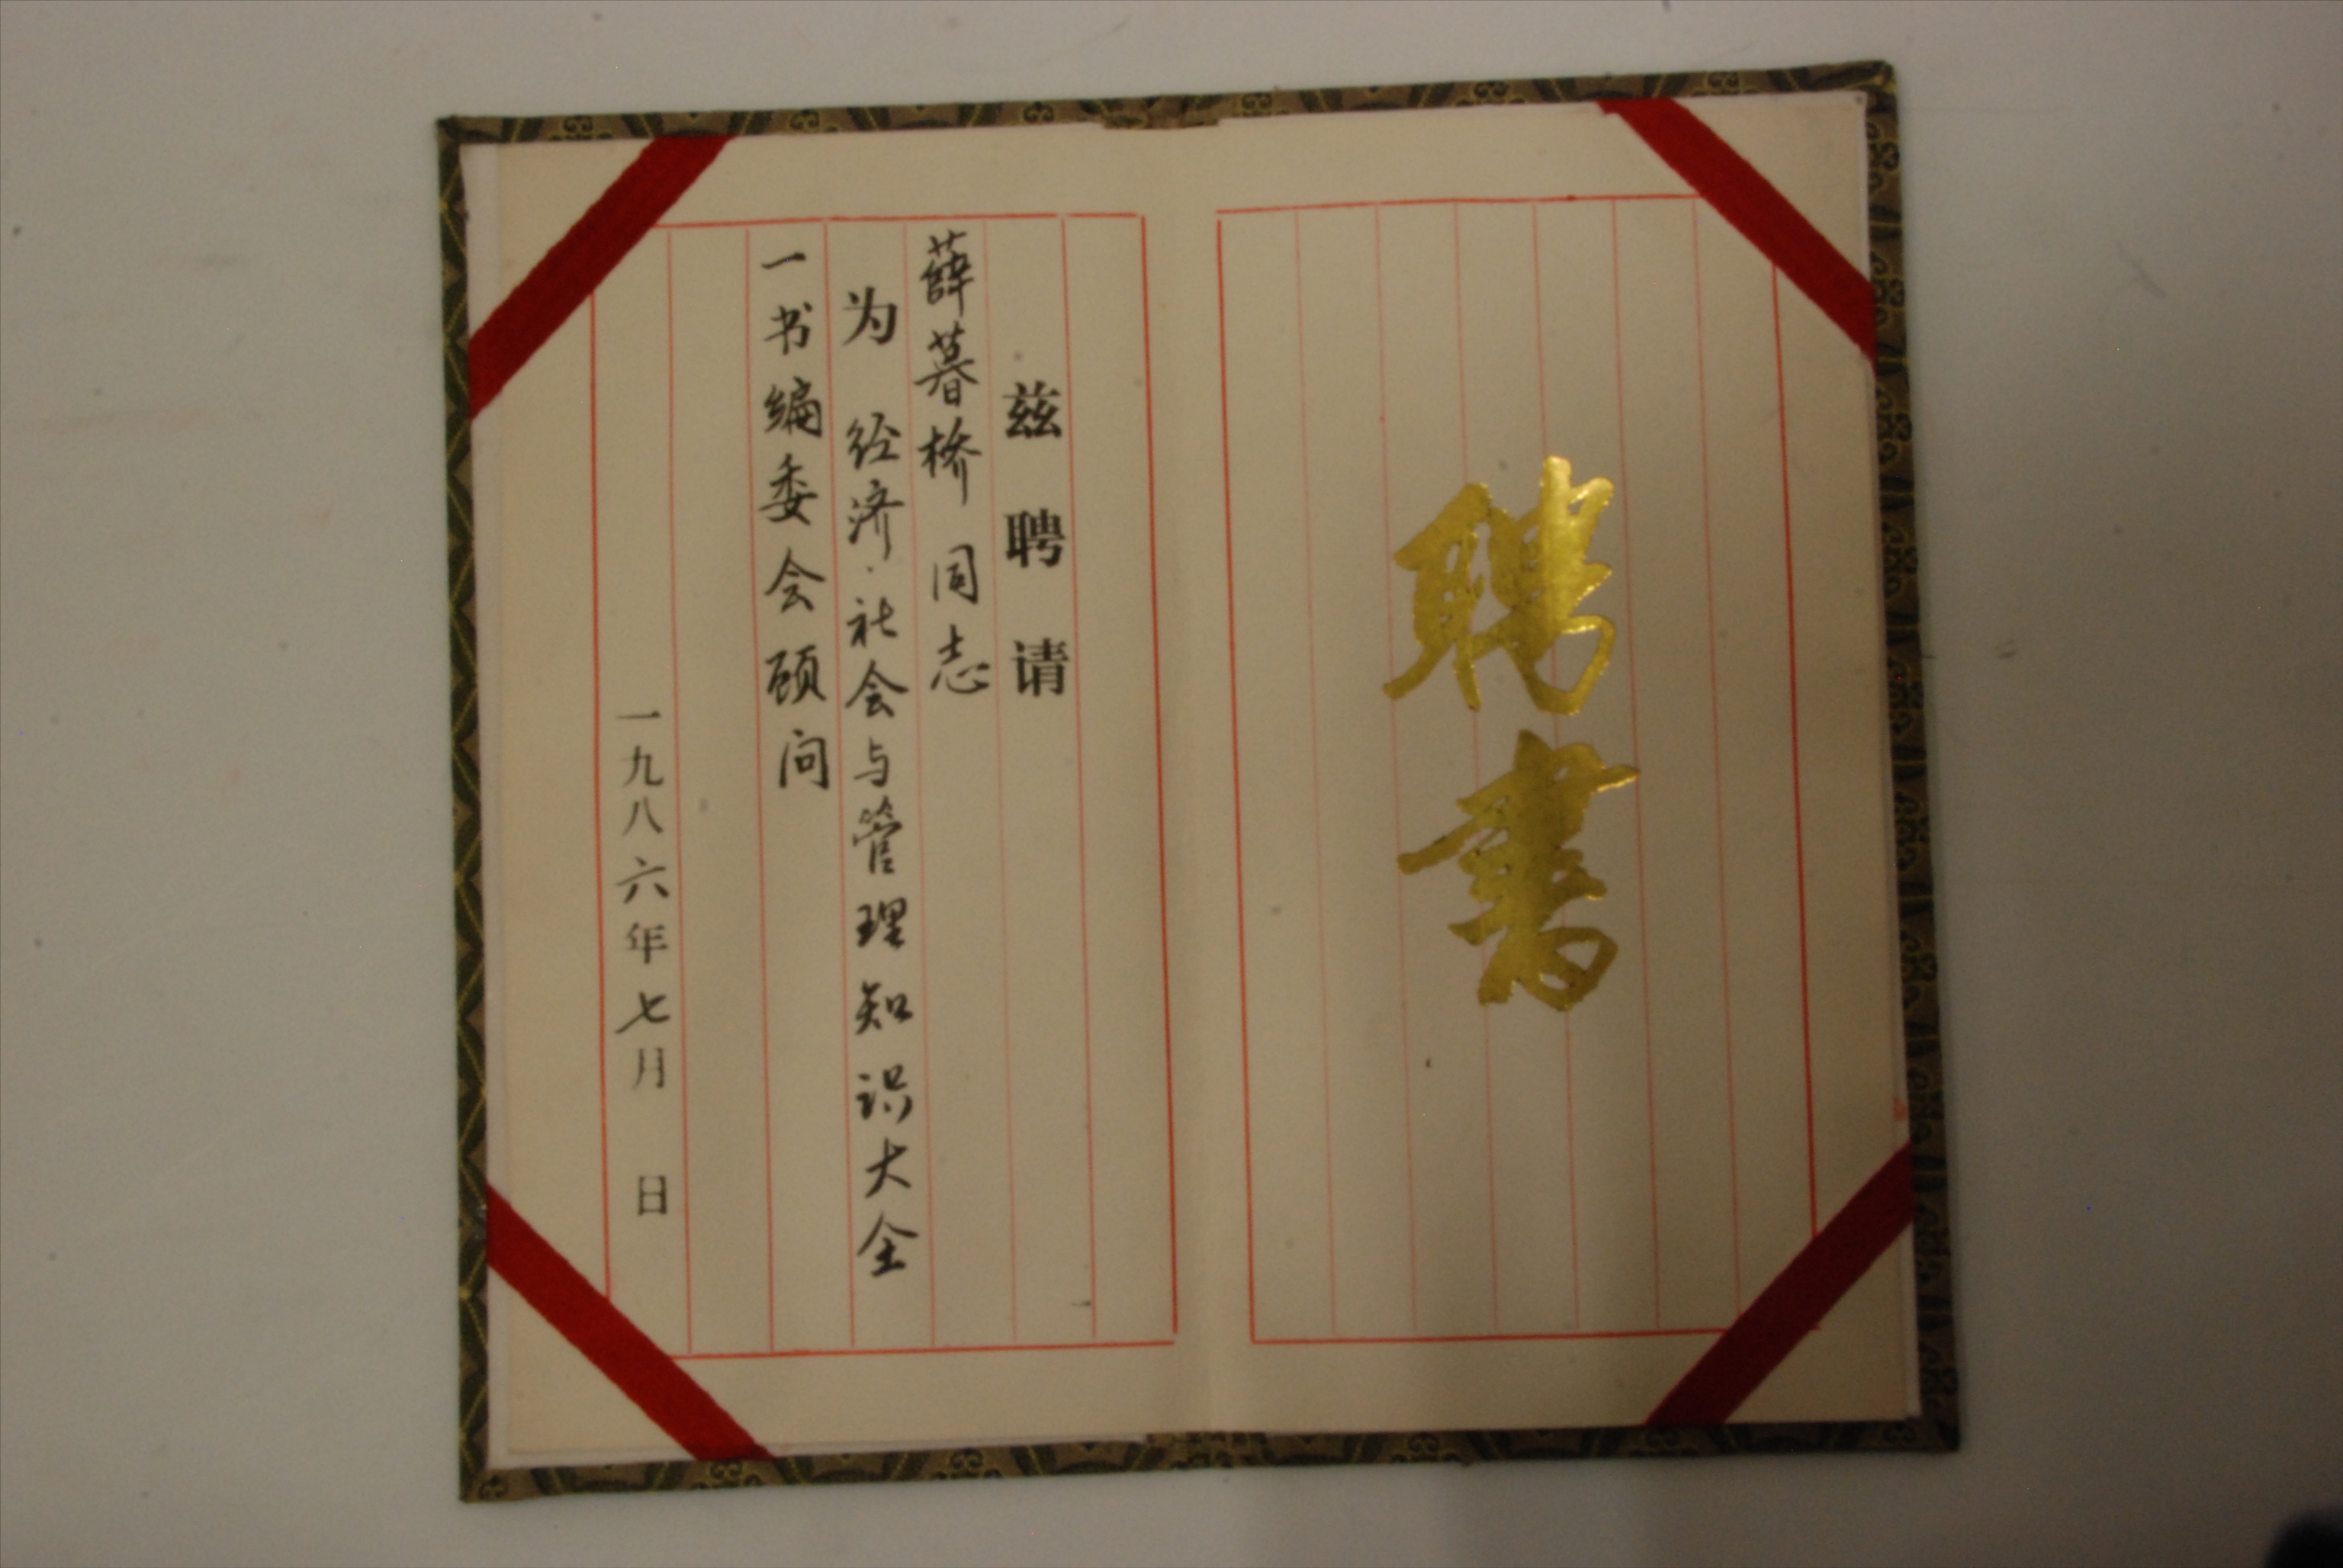 聘書
兹聘请
薛暮桥 同志
为 经济·社会与管理知识大全
一书编委会顾问
一九八六年七月 日